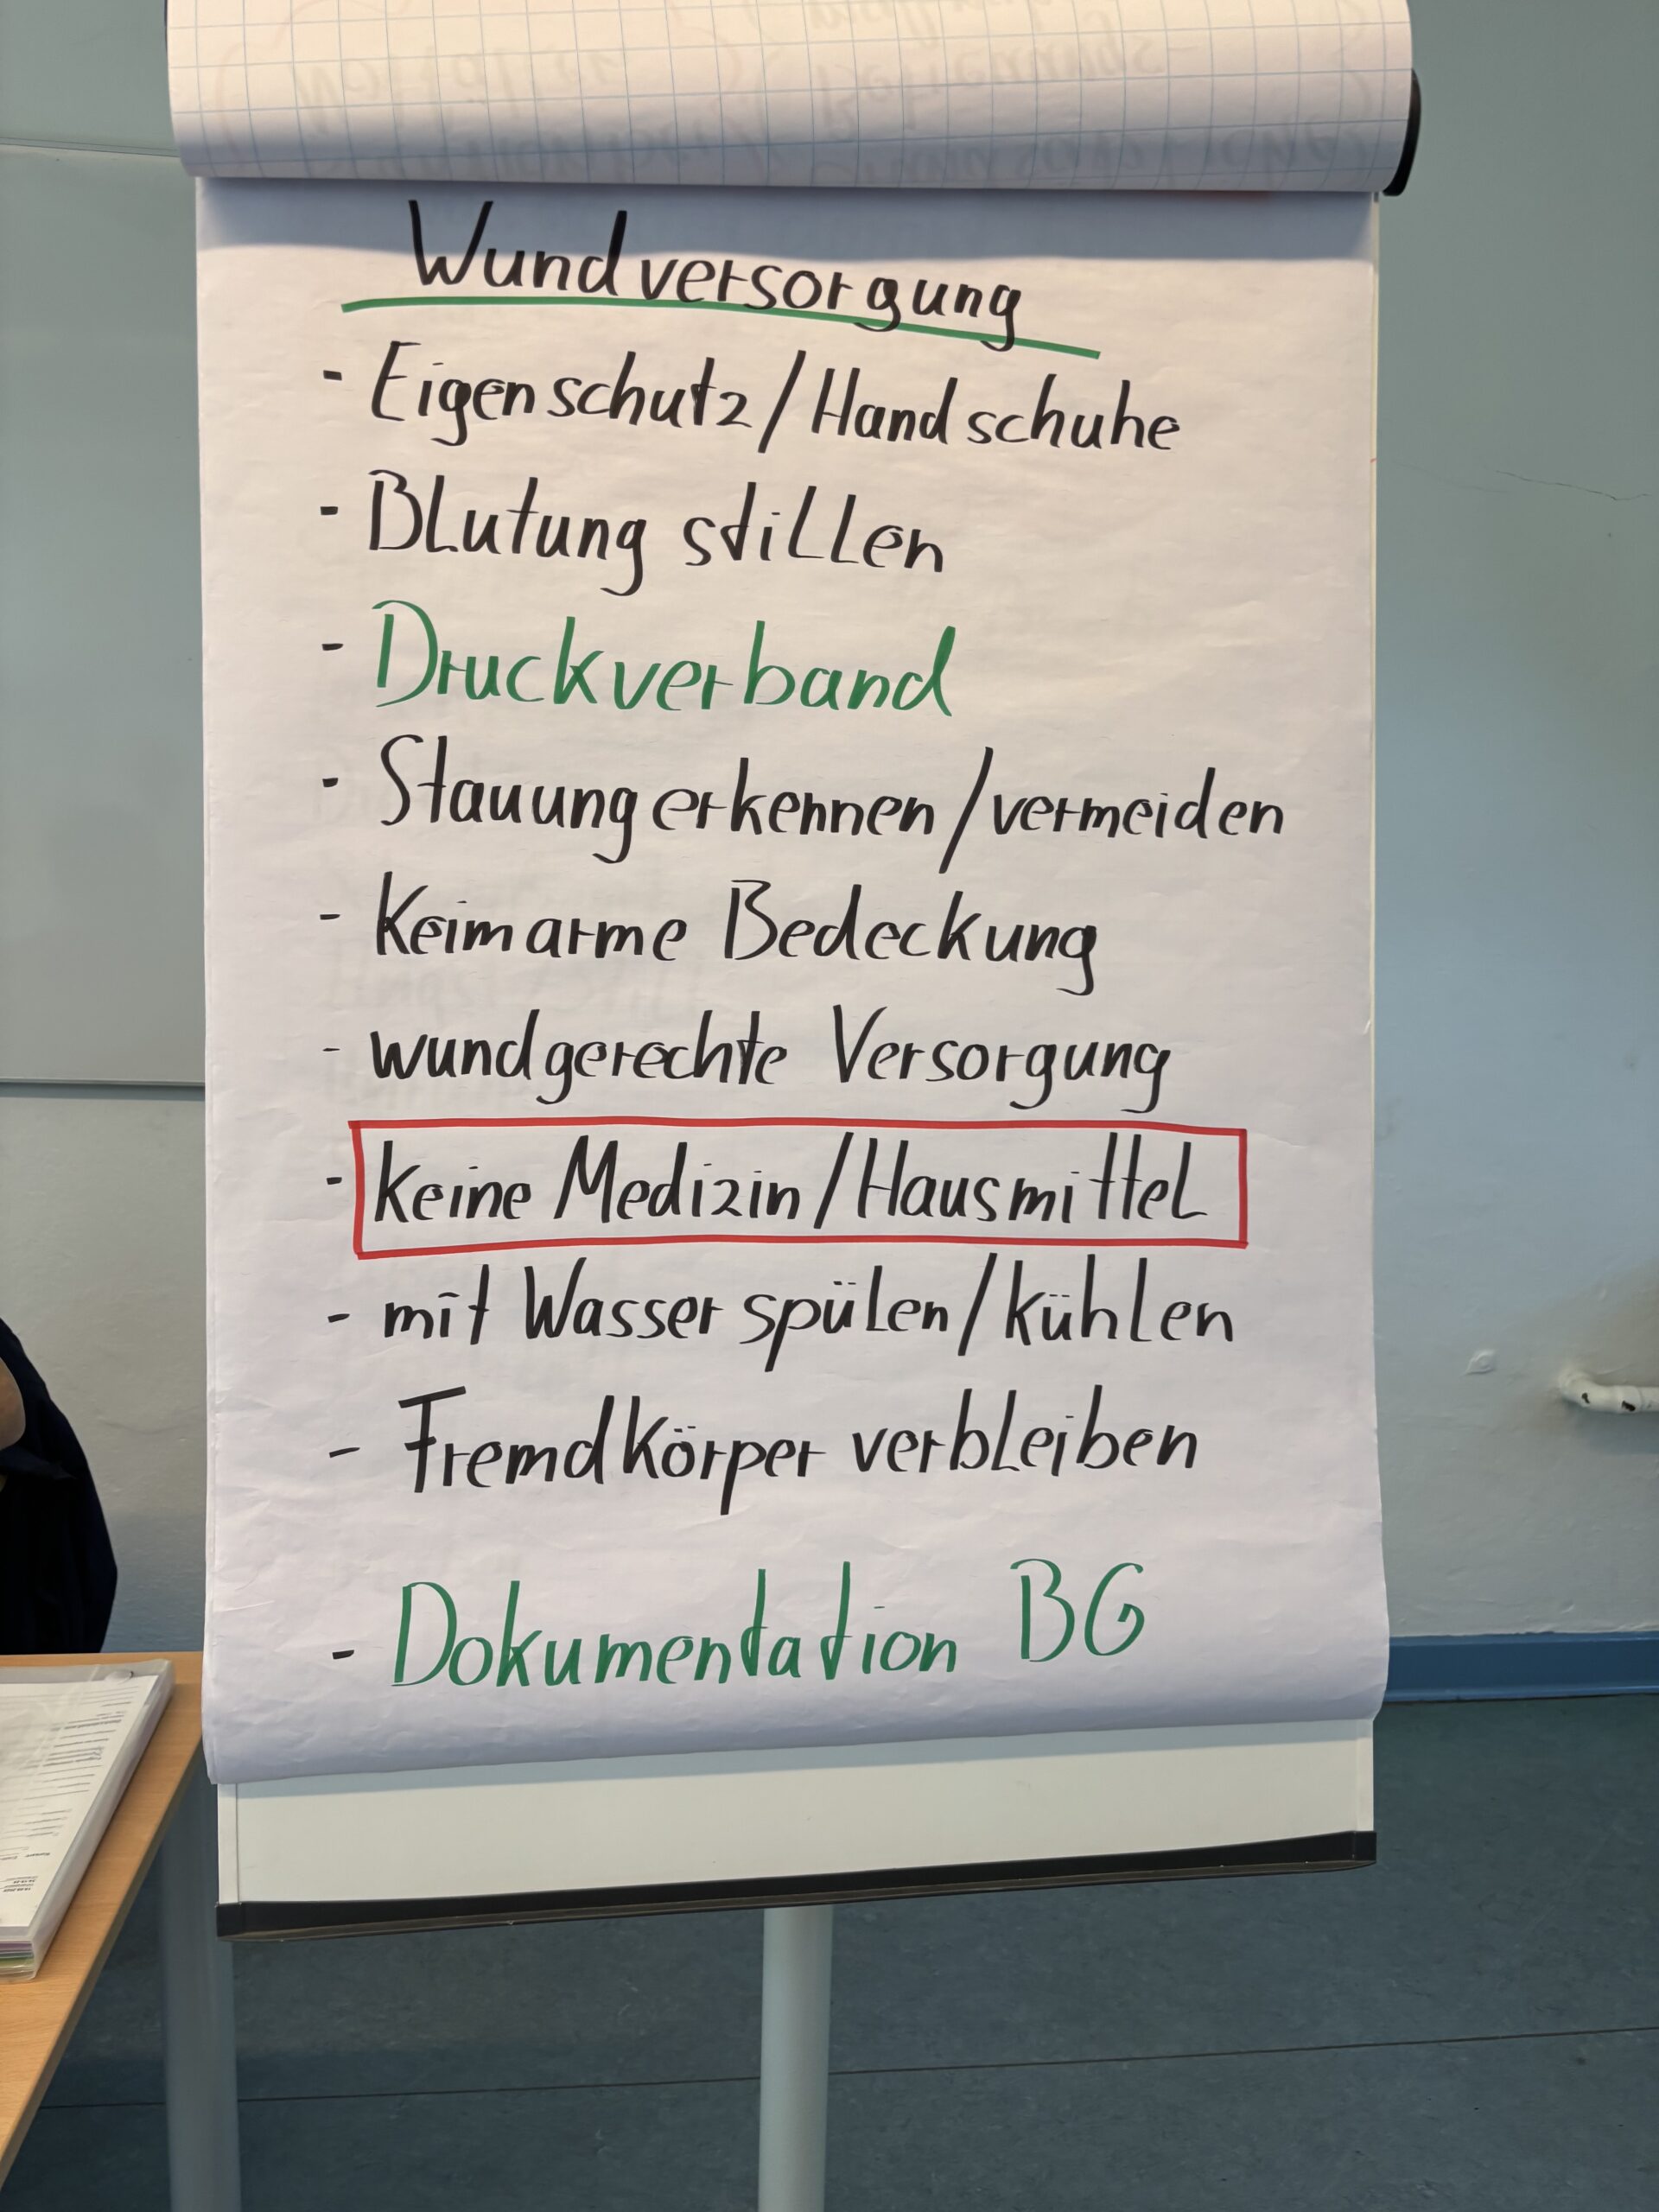 Wundversorgung
- Eigenschutz/Handschuhe
- Blutung stillen
- Druckverband
- Stauung erkennen/vermeiden
- Keimarme Bedeckung
- wundgerechte Versorgung
- keine Medizin/Hausmittel
- mit Wasser spülen/kühlen
- Fremdkörper verbleiben
- Dokumentation BG